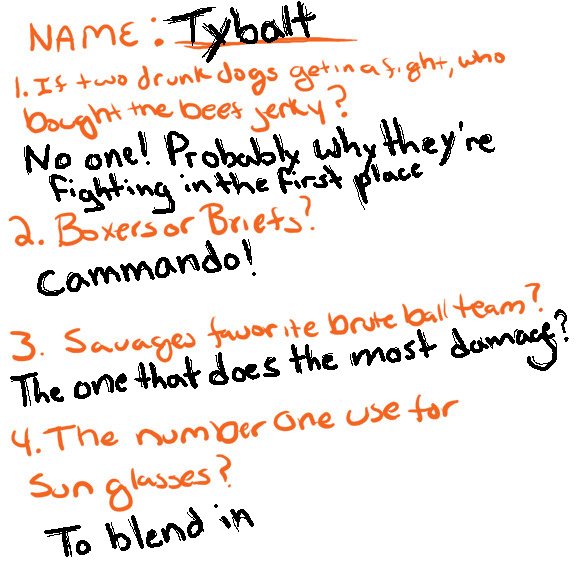 NAME: Tybalt
1. If two drunk dogs get in a fight, who
bought the beef jerky?
No one! Probably why they're
fighting in the first place
2. Boxers or Briefs?
Cammando!
3. Savages favorite brute ball team?
The one that does the most damage?
4. The number one use for
sun glasses?
To blend in